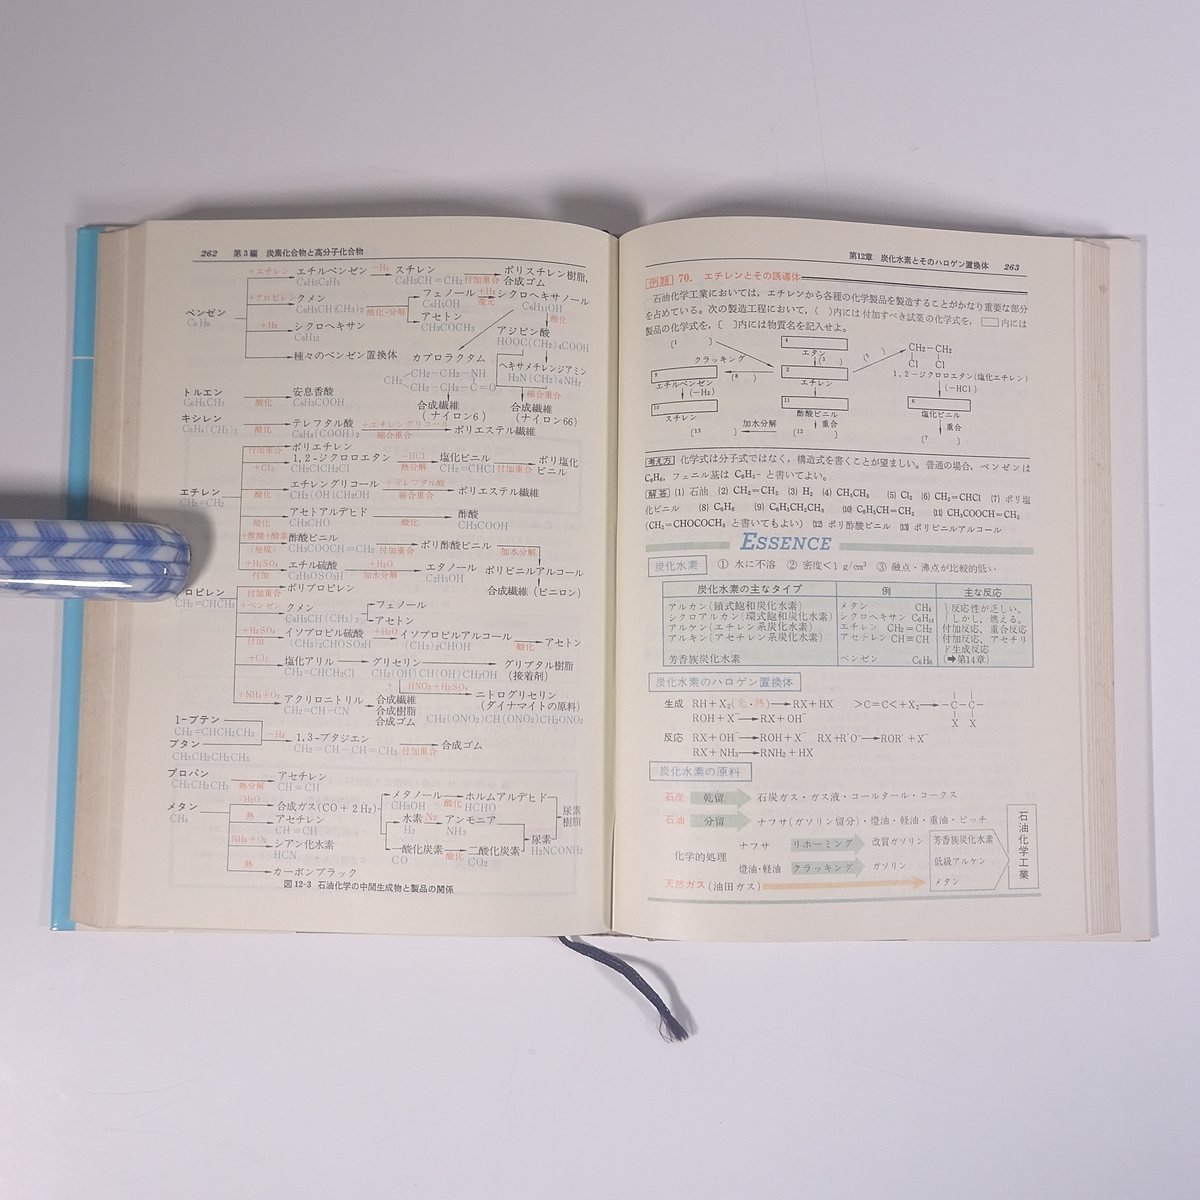 262 第3編 炭素化合物と高分子化合物
+エチレン エチルベンゼン −H₂ スチレン ポリスチレン樹脂,
C₆H₅C₂H₅ C₆H₅CH=CH₂ 付加重合 合成ゴム
+プロピレン クメン フェノール +H₂ シクロヘキサノール
ベンゼン C₆H₅CH(CH₃)₂ 酸化・分解 C₆H₅OH 還元 C₆H₁₁OH
C₆H₆ アセトン 酸化
+H₂ シクロヘキサン CH₃COCH₃ アジピン酸
C₆H₁₂ HOOC(CH₂)₄COOH
種々のベンゼン置換体 カプロラクタム ヘキサメチレンジアミン
CH₂−CH₂−NH H₂N(CH₂)₆NH₂
CH₂
CH₂−CH₂−C=O 縮合重合
トルエン 安息香酸
C₆H₅CH₃ 酸化 C₆H₅COOH 合成繊維 合成繊維
(ナイロン6) (ナイロン66)
キシレン テレフタル酸 +エチレングリコール ポリエステル繊維
C₆H₄(CH₃)₂ 酸化 C₆H₄(COOH)₂ 縮合重合
付加重合 ポリエチレン
+Cl₂ 1,2-ジクロロエタン −HCl 塩化ビニル ポリ塩化
CH₂ClCH₂Cl 熱分解 CH₂=CHCl 付加重合 ビニル
エチレン エチレングリコール +テレフタル酸 ポリエステル繊維
CH₂=CH₂ 酸化 CH₂(OH)CH₂OH 縮合重合
アセトアルデヒド 酢酸
酸化 CH₃CHO 酸化 CH₃COOH
+酢酸+酸素 酢酸ビニル ポリ酢酸ビニル 加水分解
(触媒) CH₃COOCH=CH₂ 付加重合
+H₂SO₄ エチル硫酸 +H₂O エタノール ポリビニルアルコール
付加 C₂H₅OSO₃H 加水分解 C₂H₅OH
付加重合 ポリプロピレン 合成繊維(ビニロン)
ロピレン
CH₂=CHCH₃
+ベンゼン クメン フェノール
C₆H₅CH(CH₃)₂ アセトン
+H₂SO₄ イソプロピル硫酸 +H₂O イソプロピルアルコール アセトン
付加 (CH₃)₂CHOSO₃H (CH₃)₂CHOH 酸化
+Cl₂ 塩化アリル グリセリン グリプタル樹脂
CH₂=CHCH₂Cl CH₂(OH)CH(OH)CH₂OH (接着剤)
HNO₃+H₂SO₄ ニトログリセリン
+NH₃+O₂ アクリロニトリル 合成繊維 (ダイナマイトの原料)
CH₂=CH−CN 合成樹脂
合成ゴム CH₂(ONO₂)CH(ONO₂)CH₂ONO₂
1-ブテン
CH₂=CHCH₂CH₃
−H₂ 1,3-ブタジエン 合成ゴム
ブタン CH₂=CH−CH=CH₂ 付加重合
CH₃CH₂CH₂CH₃
プロパン アセチレン
CH₃CH₂CH₃ 熱分解 CH≡CH
メタン H₂O 合成ガス(CO+2H₂) メタノール ホルムアルデヒド
CH₄ CH₃OH 酸化 HCHO
熱 アセチレン 水素 N₂ アンモニア 尿素
CH≡CH H₂ NH₃ 樹脂
NH₃+O₂ シアン化水素 一酸化炭素 二酸化炭素 尿素
HCN CO 酸化 CO₂ H₂NCONH₂
熱 カーボンブラック
図12-3 石油化学の中間生成物と製品の関係
第12章 炭化水素とそのハロゲン置換体 263
例題 70. エチレンとその誘導体
石油化学工業においては,エチレンから各種の化学製品を製造することがかなり重要な部分
を占めている。次の製造工程において,( )内には付加すべき試薬の化学式を,□内には
製品の化学式を,〔 〕内には物質名を記入せよ。
〔1 〕 4 (5 ) CH₂−CH₂
エタン Cl Cl
クラッキング (3 ) 1,2-ジクロロエタン(塩化エチレン)
9 (8 ) 2 (−HCl)
エチルベンゼン エチレン
(−H₂)
10 11 6
スチレン 酢酸ビニル 塩化ビニル
加水分解 重合 重合
〔13 〕 〔12 〕 〔7 〕
考え方 化学式は分子式ではなく,構造式を書くことが望ましい。普通の場合,ベンゼンは
C₆H₆,フェニル基は C₆H₅− と書いてよい。
解答 (1) 石油 (2) CH₂=CH₂ (3) H₂ (4) CH₃CH₃ (5) Cl₂ (6) CH₂=CHCl (7) ポリ塩
化ビニル (8) C₆H₆ (9) C₆H₅CH₂CH₃ (10) C₆H₅CH=CH₂ (11) CH₃COOCH=CH₂
(CH₂=CHOCOCH₃ と書いてもよい) (12) ポリ酢酸ビニル (13) ポリビニルアルコール
ESSENCE
炭化水素 ① 水に不溶 ② 密度<1 g/cm³ ③ 融点・沸点が比較的低い
炭化水素の主なタイプ 例 主な反応
アルカン(鎖式飽和炭化水素) メタン CH₄ 反応性が乏しい。
シクロアルカン(環式飽和炭化水素) シクロヘキサン C₆H₁₂ しかし,燃える。
アルケン(エチレン系炭化水素) エチレン CH₂=CH₂ 付加反応,重合反応
アルキン(アセチレン系炭化水素) アセチレン CH≡CH 付加反応,アセチリ
ド生成反応
芳香族炭化水素 ベンゼン C₆H₆ (➡第14章)
炭化水素のハロゲン置換体
生成 RH+X₂(光・熱)→RX+HX >C=C<+X₂→−C−C−
ROH+X⁻→RX+OH⁻ X X
反応 RX+OH⁻→ROH+X⁻ RX+R′O⁻→ROR′+X⁻
RX+NH₃→RNH₂+HX
炭化水素の原料
石炭 乾留 石炭ガス・ガス液・コールタール・コークス
石油 分留 ナフサ(ガソリン留分)・燈油・軽油・重油・ピッチ
ナフサ リホーミング 改質ガソリン 芳香族炭化水素
化学的処理 低級アルケン
燈油・軽油 クラッキング ガソリン
天然ガス(油田ガス) メタン
石油化学工業